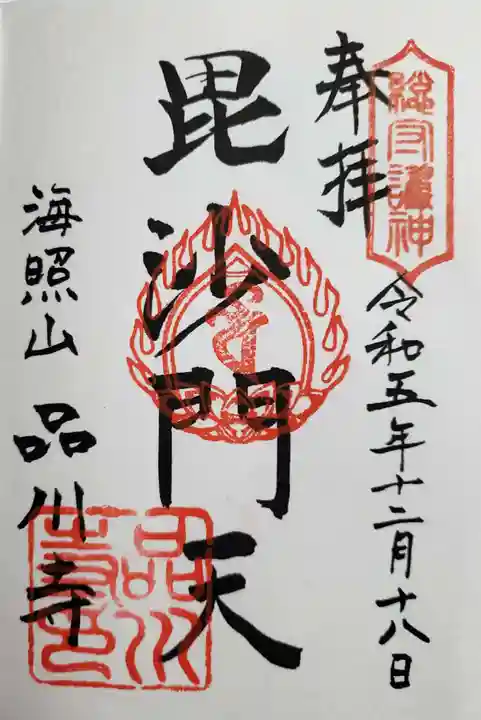 総守護神
奉拝
令和五年十二月十八日
毘沙門天
海照山 品川寺
品川